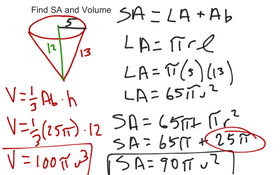 Find SA and Volume
5
12
13
SA = LA + Ab
LA = πrl
LA = π(5)(13)
LA = 65πu²
V = 1/3 Ab · h
V = 1/3 (25π) · 12
V = 100πu³
SA = 65π + πr²
SA = 65π + 25π
SA = 90πu²